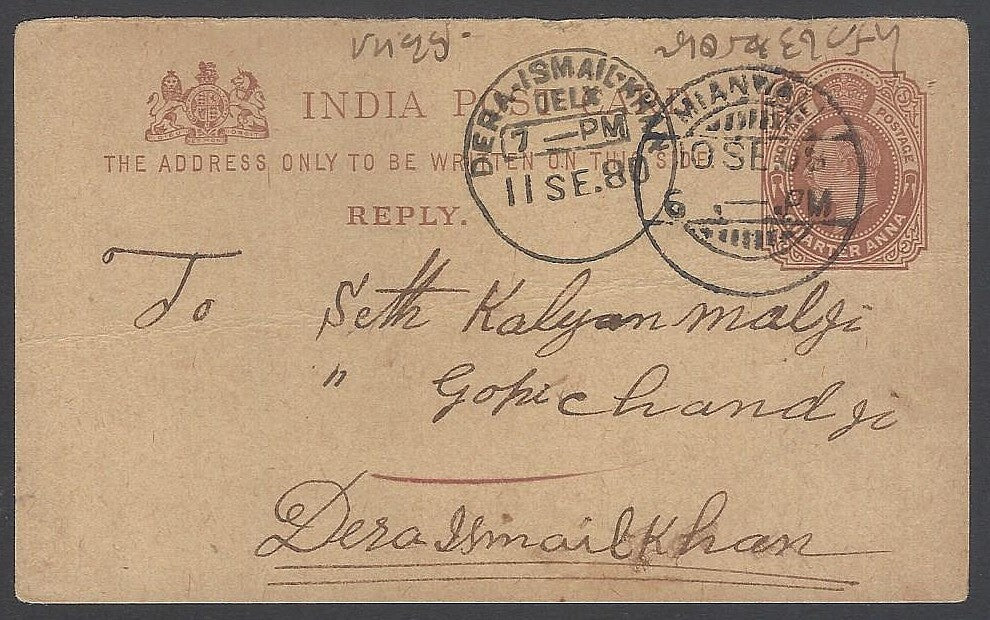 INDIA POSTCARD
THE ADDRESS ONLY TO BE WRITTEN ON THIS SIDE
REPLY.
DERA-ISMAIL-KHAN
DELX
7 — PM
11 SE.80
MIANWA
10 SE
6 — PM
POSTAGE
QUARTER ANNA
To
Seth Kalyan malji
" Gopi chand ji
Dera Ismail Khan